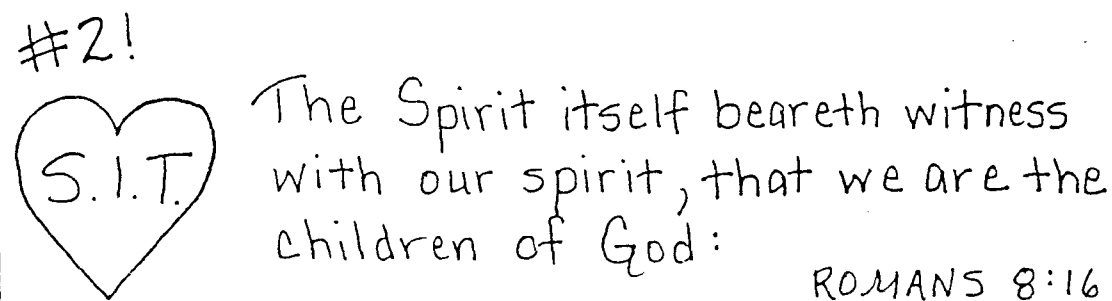 #2!
S.I.T.
The Spirit itself beareth witness
with our spirit, that we are the
children of God:
ROMANS 8:16